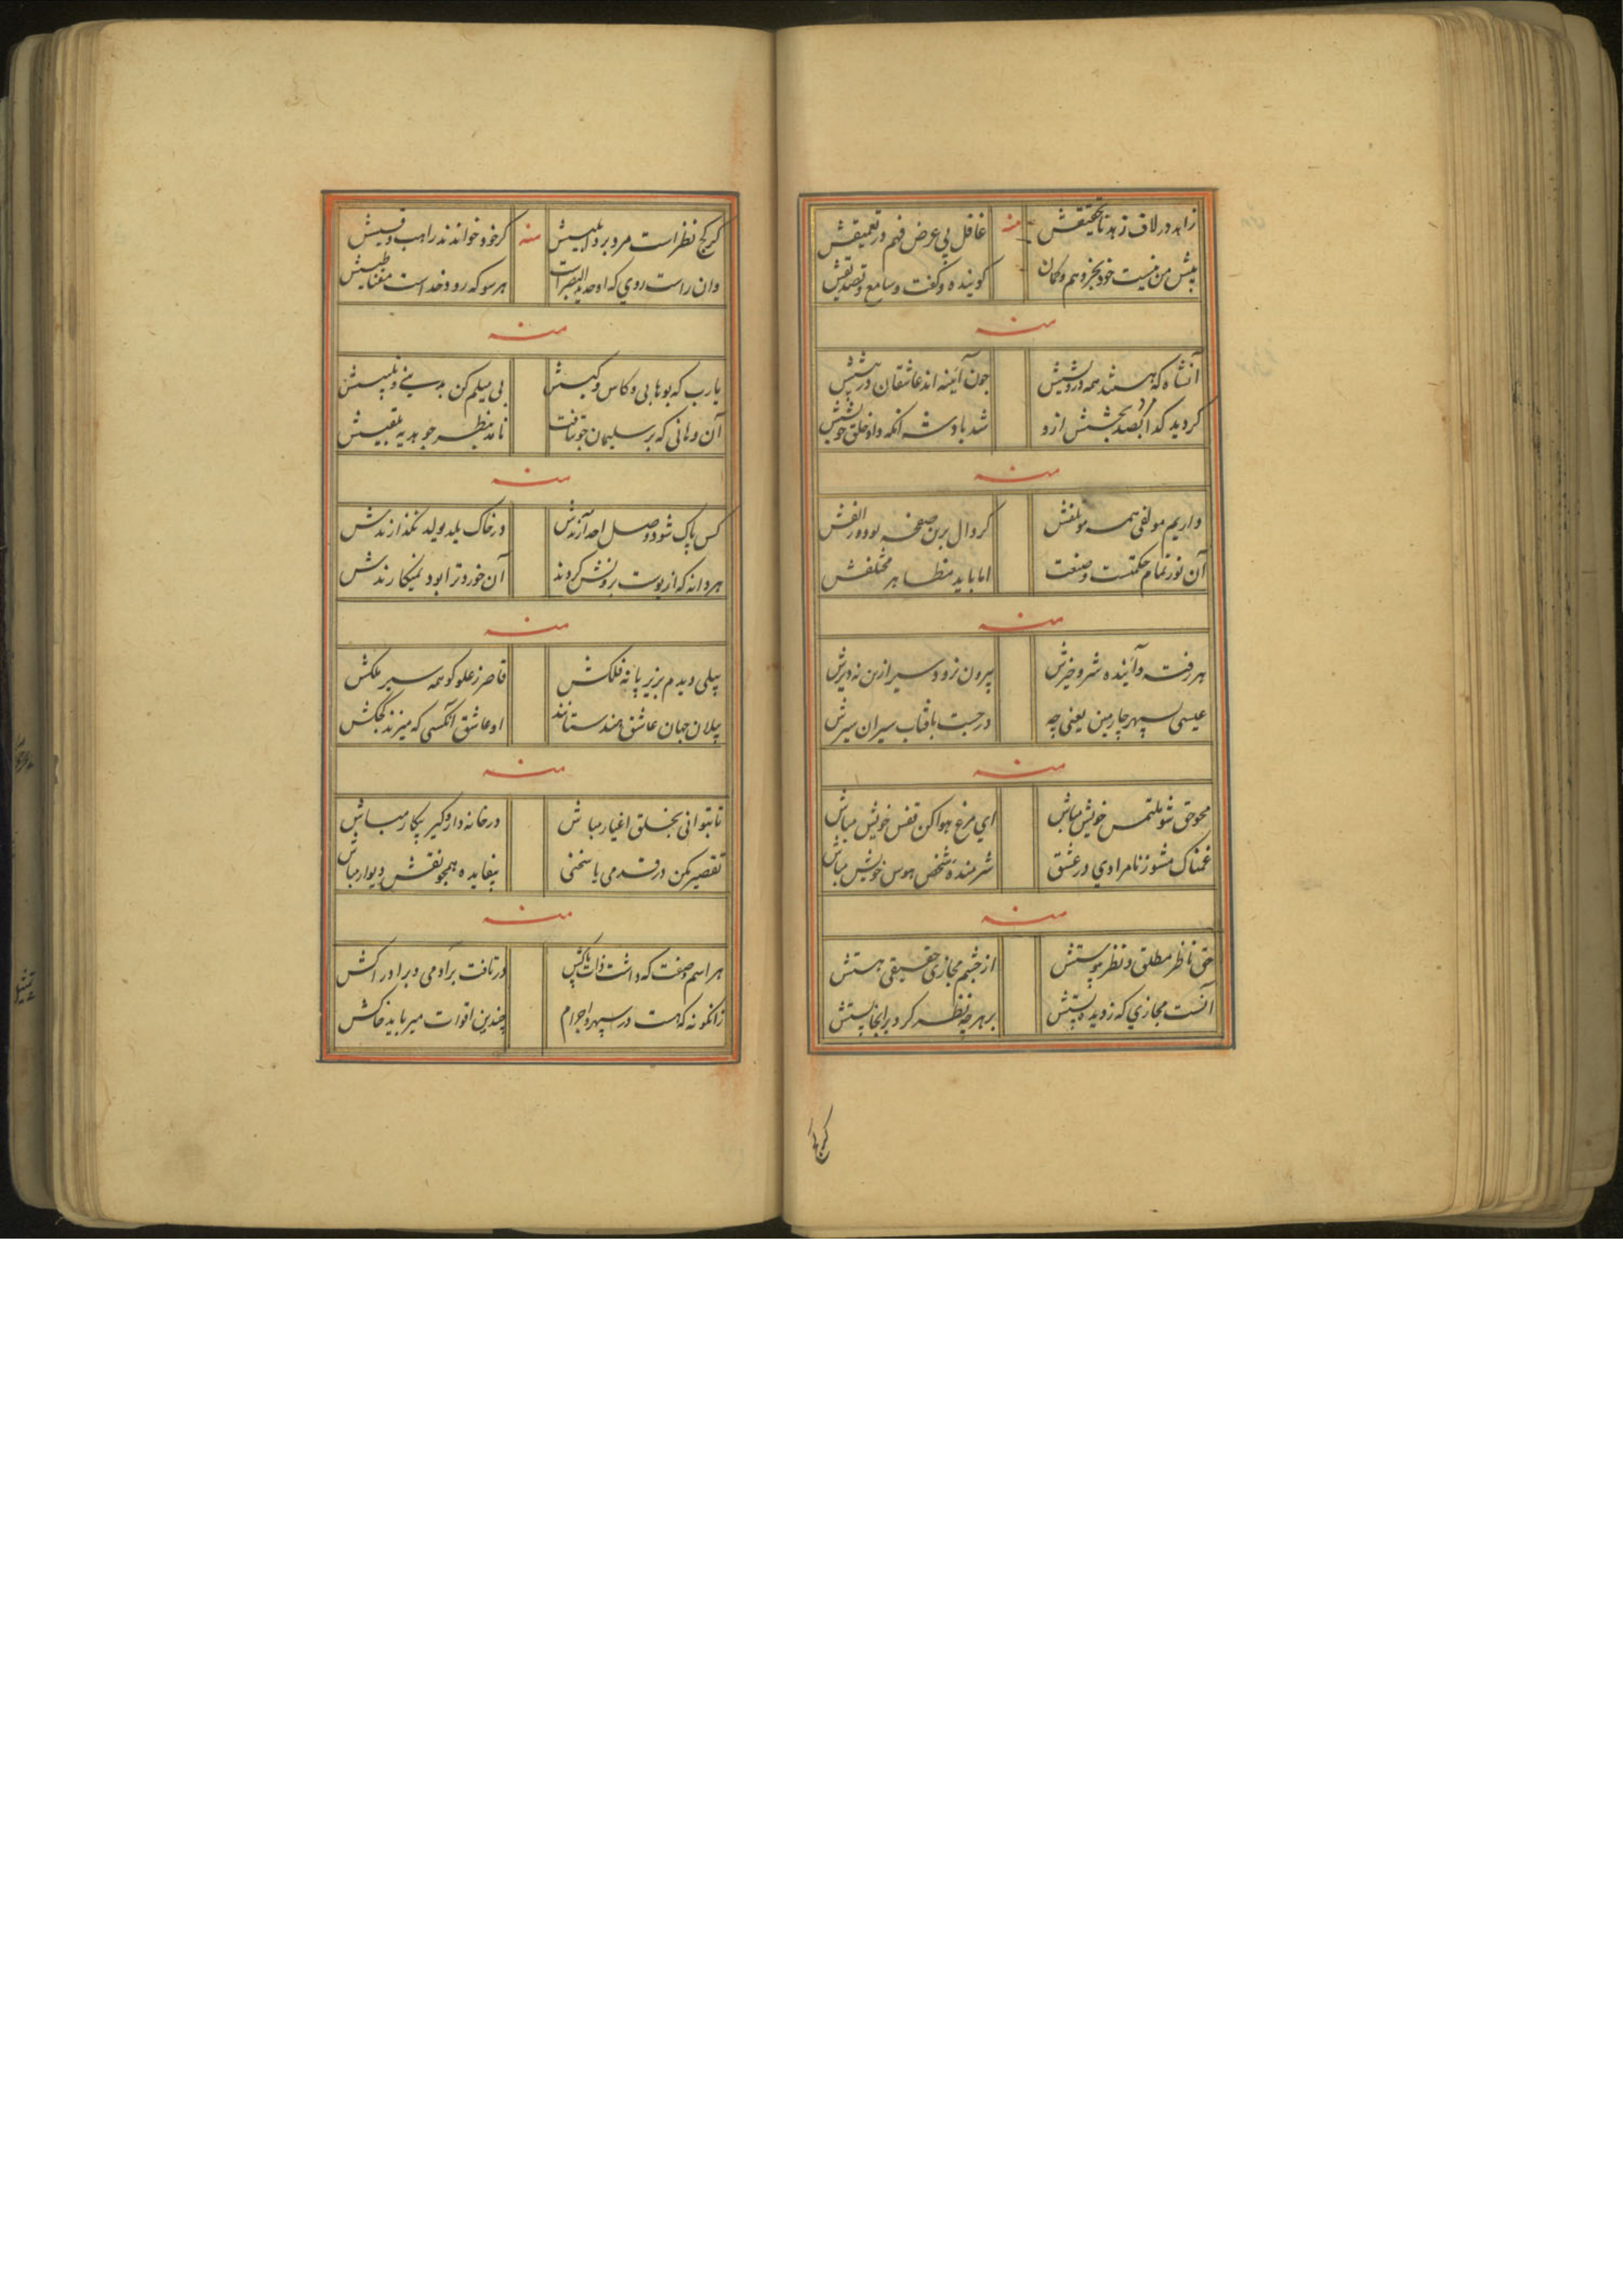 زاهد در لاف زهد تا تحقیقش منه غافل بی عرض فهم در تعمیقش
پیش من نیست خود بجز وهم و کمان کوینده و کفت و سامع و تصدیقش
منه
آنشاه که هستند همه درویشش جون آئینه اند عاشقان در پیشش
کردید کدا بصد بخشش ازو شد بادشه انکه داد خلق خویشش
منه
داریم مولفی همه موتلفش کر دال برین صفحه بود ور الفش
آن نور تمام حکمتست و صنعت اما باید مظاهر مختلفش
منه
هر رفته و آئینده شر و خیرش بیرون نرود سیر ازین نه دیرش
عیسی سپهر چارمین یعنی چه در جست بافتاب سیران سیرش
منه
محو حق شو ملتمس خویش مباش ای مرغ هوا کن قفس خویش مباش
غمناک مشو ز نامرادی در عشق شرمنده شخص هوس خویش مباش
منه
حق ناظر مطلق و نظر پیوستش از چشم مجازی حقیقی هستش
آنست مجازی که ز دید پستش بر هرچه نظر کرد برانجا بستش
کر کج
کر کج نظر است مرد برد ابلیسش منه کر خود خوانندند راهب و قسیش
وان راست روی که اوحد البصر است هر سو که رود خداست مغناطیسش
منه
یارب که بوهابی و کاس و کیسش بی میلم کن بدینی و تلبیسش
آن وهابی که بر سلیمان جو تافت نامد بنظر جو هدیه بلقیسش
منه
کس پاک شود وصل احد آرندش در خاک یلد یولد نکذارندش
هر دانه که از پوست برونش کردند آن خورد ترا بود نمیکارندش
منه
پیلی دیدم بزیر پا نه فلکش قاصر ز علو کوهمه سیر ملکش
پیلان جهان عاشق هندستانند او عاشق آنکسی که میزند کجکش
منه
تا بتوانی بخلق اغیار مباش در خانه دار و کیر بیکار مباش
تقصیر مکن در قدمی یا سخنی بیفایده همجو نقش دیوار مباش
منه
هر اسم و صفت که داشت ذات پاکش در تافت بر آدمی و بر ادراکش
زانکونه که هست در سپهر و اجرام چندین اقوات میرباید خاکش